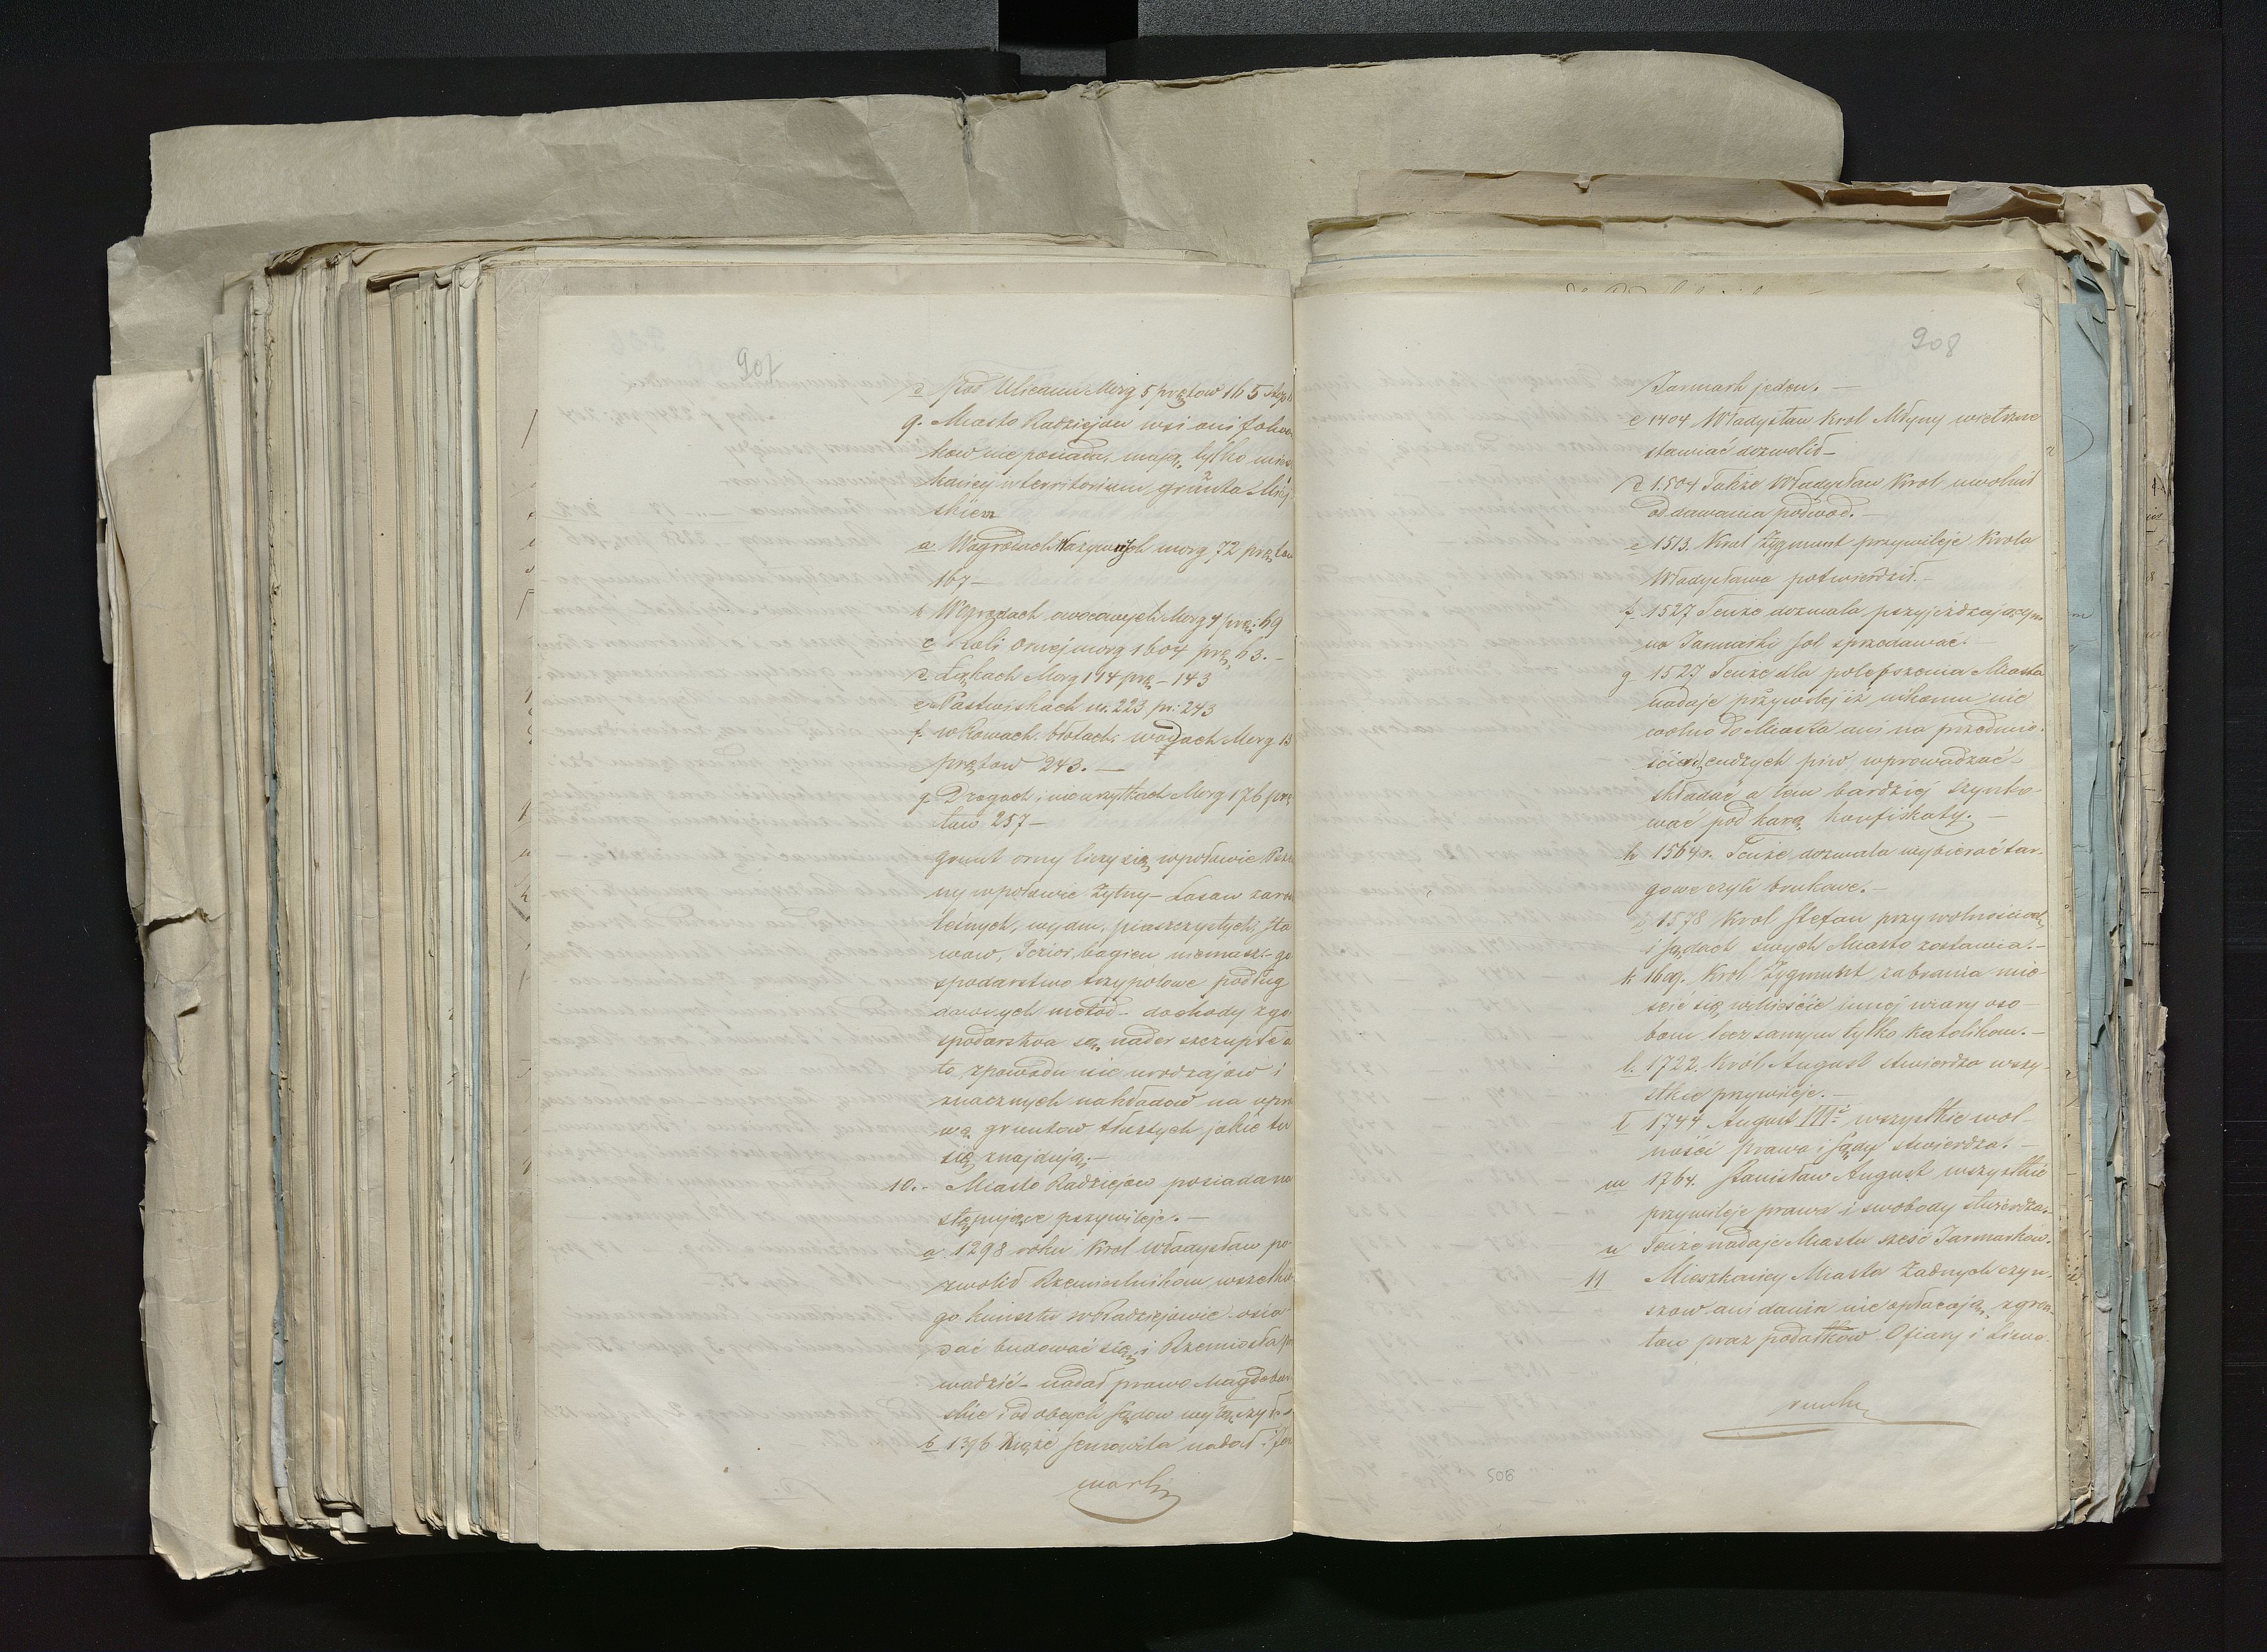 907
d Pod Ulicami Morg 5 prętow 165 stop
9. Miasto Radziejow wsi ani folwar
kow nie posiada, mają tylko miesz
kancy w territorium grunta Miej
skiem
a Wogrodach Warzywnych morg 72 prętow
167 —
b Wogrodach owocowych Morg 4 prę: 69
c Roli Ornej morg 1604 prę 63. —
d Łąkach Morg 114 prę — 143
e Pastwiskach m. 223 pr: 243
f. w Rowach. błotach i wodach Morg 13
prętow 243. —
g. Drogach i nieużytkach Morg 176 prę
tow 257 —
grunt orny liczy się wpołowie Psze
ny wpołowie Żytny — Lasow zaro
leśnych, wydm, piaszczystych, sta
wow, Jezior, bagien niemasz — go
spodarstwo trzypolowe podług
dawnych metod — dochody z go
spodarstwa są nader szczupłe a
to zpowodu nie urodzajow i
znacznych nakładow na upra
wę gruntow tłustych jakie tu
się znajdują. —
10. Miasto Radziejow posiada na
stępujące przywileje. —
a 1298 roku Krol Władysław po
zwolił Rzemieslnikom wszelkie
go kunsztu w Radziejowie osia
dać budować się, i Rzemiosła pro
wadzić — nadał prawo Magdebur
skie i od obcych Sądow wyłączył
b 1396 Xiąże Semowita nadał Jar
mark
908
Jarmark jeden. —
c 1404 Władysław Krol Młyny wietrzne
stawiać dozwolił —
d 1504 Także Władysław Krol uwolnił
od dawania podwod. —
e 1513. Krol Zygmunt przywileje Krola
Władysława potwierdził. —
f 1527 Tenże dozwala przyjeżdzającym
na Jarmarki sol sprzedawać. —
g 1527 Tenże dla polepszenia Miasta
nadaje przywilej iż nikomu nie
wolno do Miasta ani na przedmie
ścia cudzych piw wprowadzać
składać a tem bardziej szynko-
wać pod karą konfiskaty. —
h 1564 r. Tenże dozwala wybierać tar-
gowe czyli brukowe. —
i 1578 Krol Stefan przy wolnościach
i sądach swych Miasto zostawia. —
k 1609. Krol Zygmunt zabrania mie-
ścić się w Mieście innej wiary oso-
bom lecz samym tylko katolikom. —
l. 1722. Król August stwierdza wszy-
stkie przywileje. —
ł 1744 August III wszystkie wol-
ności prawa i Sądy stwierdza. —
m 1764. Stanisław August wszystkie
przywileje prawa i swobody stwierdza. —
n Tenże nadaje Miastu sześć Jarmarkow. —
11 Mieszkancy Miasta Żadnych czyn-
szow ani danin nie opłacają, z grun-
tow praz podatkow Ofiary i Liwe-
runku
508